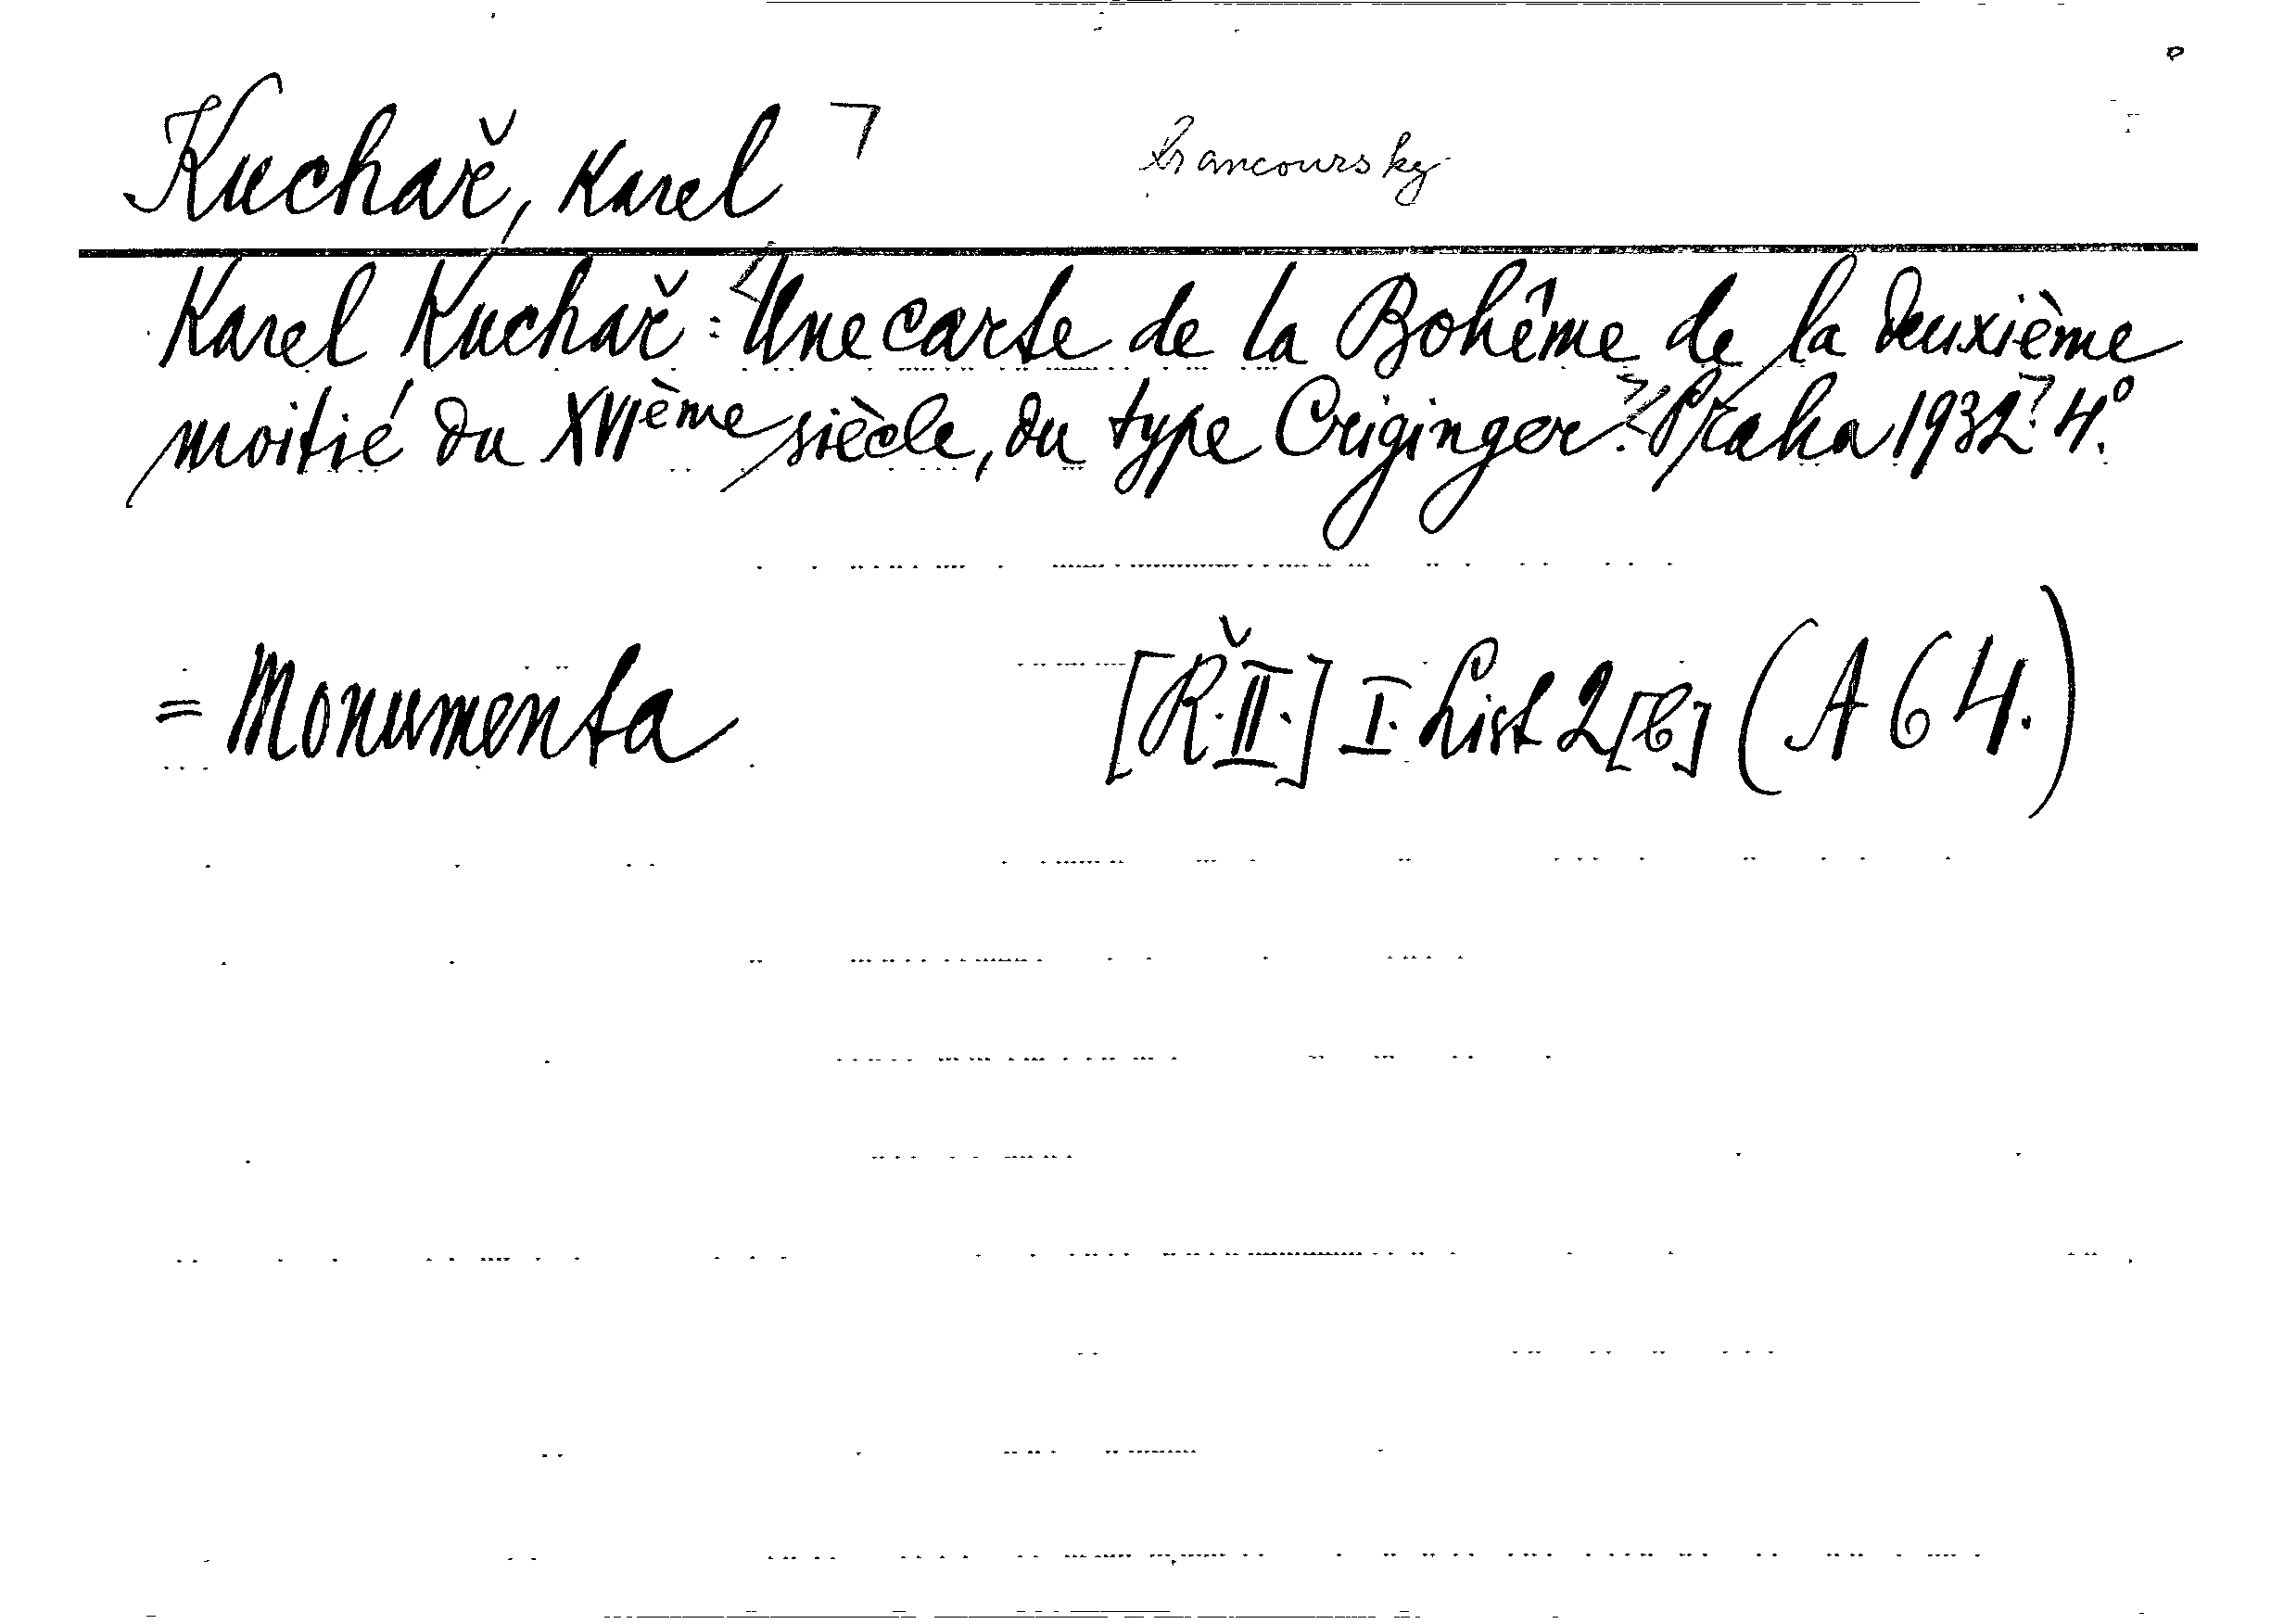 Kuchař, Karel ⏋ francoursky
Karel Kuchař: <Une carte de la Bohême de la deuxième
moitié du XVIème siècle, du type Criginger.> <Praha 1932⏋. 4°.
= Monumenta [Ř.II.] I. List 2[b] (A 64.)